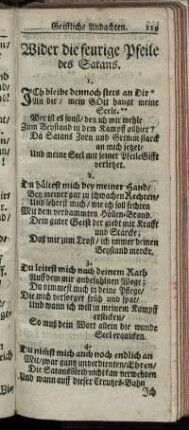 Geistliche Andachten. 119
Wider die feurige Pfeile
des Satans.
1.
Ich bleibe dennoch stets an Dir
An dir / mein GOtt hangt meine
Seele.
Wer ist es sonst / den ich mir wehle
Zum Beystand in dem Kampff allhier?
Da Satans Zorn und Grimm starck
an mich setzet /
Und meine Seel mit seiner Pfeile Gifft
verletzet.
2.
Du hältest mich bey meiner Hand /
Bey meiner gar zu schwachen Rechten /
Und lehrest mich / wie ich soll fechten
Mit dem verdammten Höllen-Brand.
Dein guter Geist der giebt mir Krafft
und Stärcke;
Daß mir zum Trost / ich immer deinen
Beystand mercke.
3.
Du leitest mich nach deinem Rath
Auf dem mir anbefohlnen Wege;
Du nimmest mich in deine Pflege /
Die mich versorget früh und spat /
Und wann ich will in meinem Kampff
ersticken /
So muß dein Wort allein die wunde
Seel erquicken.
4.
Du nimst mich auch noch endlich an
Mit / zwar gantz unverdienten / Ehren /
Die Satans Neid nicht kan verwehren
Und wann auff dieser Creutzes-Bahn
Ich